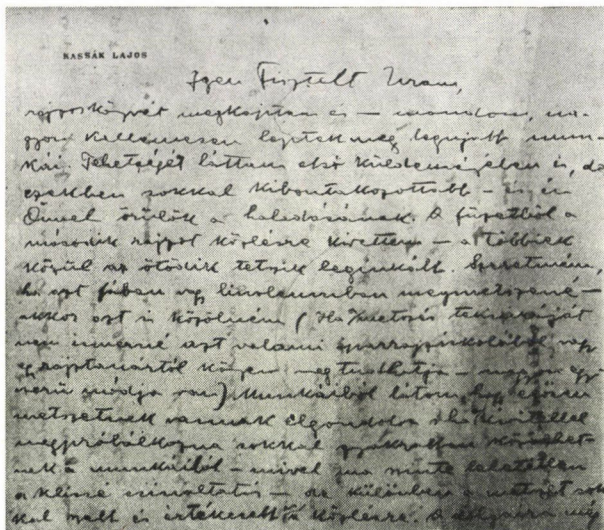 KASSÁK LAJOS
Igen Tisztelt Uram,
rajzosközvét megkaptam és – mondom, na-
gyon kellemesen leptek meg legujabb mun-
kái. Tehetségét láttam első küldeményében is, de
ezekben sokkal kibontakozottabb – és én
Önnel örülök a haladásának. A füzetből a
második rajzot közlésre kivettem – a többiek
közül az ötödik tetszik leginkább. Szeretném,
ha ezt fában vagy linoleumban megmetszené –
akkor ezt is közölném (Ha a metszés teknikáját
nem ismerné azt valami iparrajziskolából, vagy
egy rajztanártól könnyen megtudhatja – nagyon egy-
szerű módja van). Munkáiból látom, hogy erősen
metszetnek vannak elgondolva s ha kivitellel
megpróbálkozna sokkal gyakrabban közölhet-
nék a munkáiból – mivel ma szinte lehetetlen
a klisé csináltatás – de különben a metszet sok-
kal szebb és értékesebb a közlésre. A